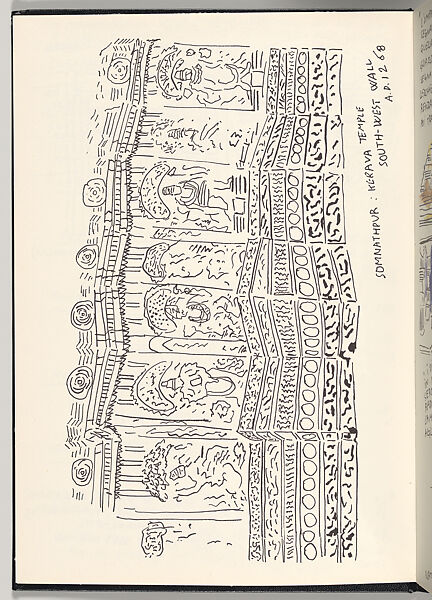 SOMNATHPUR : KERAVA TEMPLE
SOUTH-WEST WALL
A.D. 1268